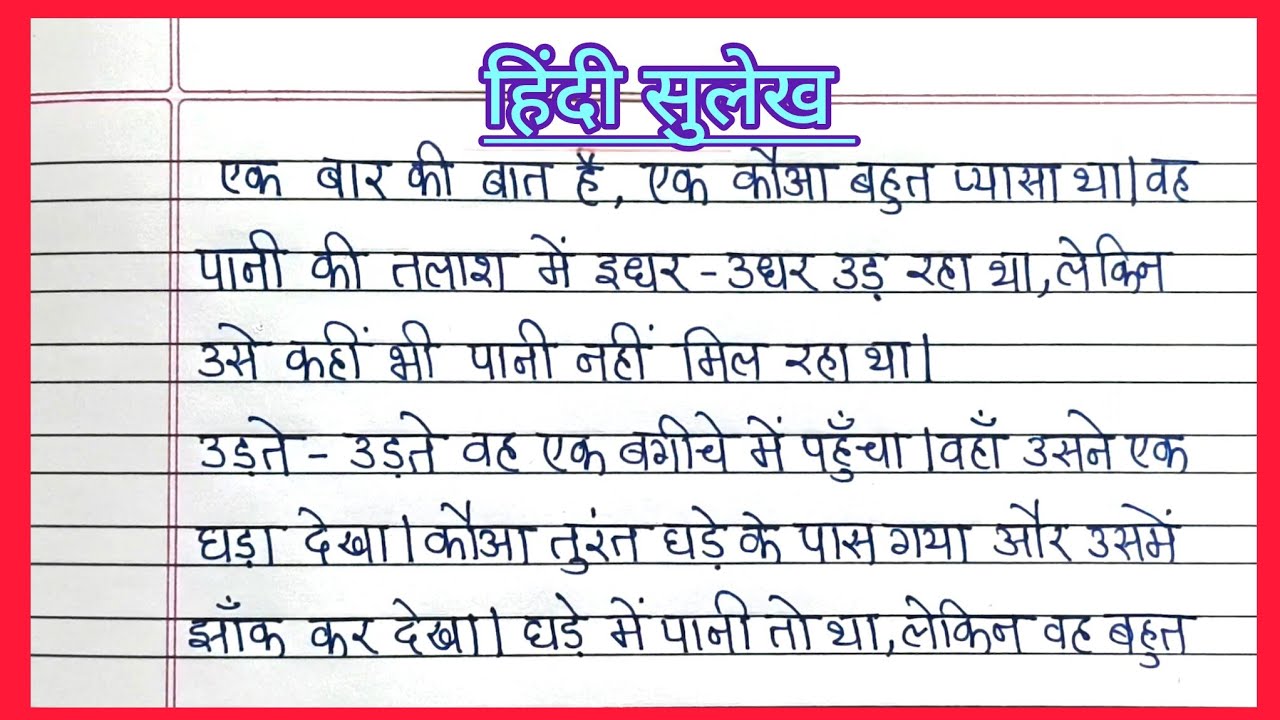 हिंदी सुलेख
एक बार की बात है, एक कौआ बहुत प्यासा था। वह
पानी की तलाश में इधर - उधर उड़ रहा था, लेकिन
उसे कहीं भी पानी नहीं मिल रहा था।
उड़ते - उड़ते वह एक बगीचे में पहुँचा। वहाँ उसने एक
घड़ा देखा। कौआ तुरंत घड़े के पास गया और उसमें
झाँक कर देखा। घड़े में पानी तो था, लेकिन वह बहुत